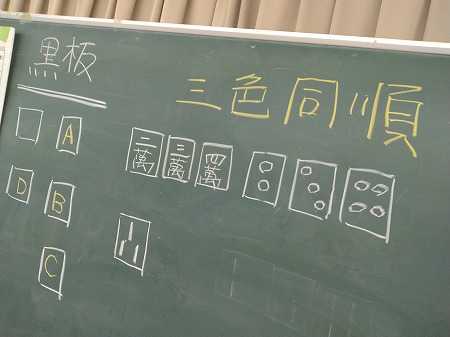 黒板
三色同順
A
二萬 三萬 四萬
D
B
C